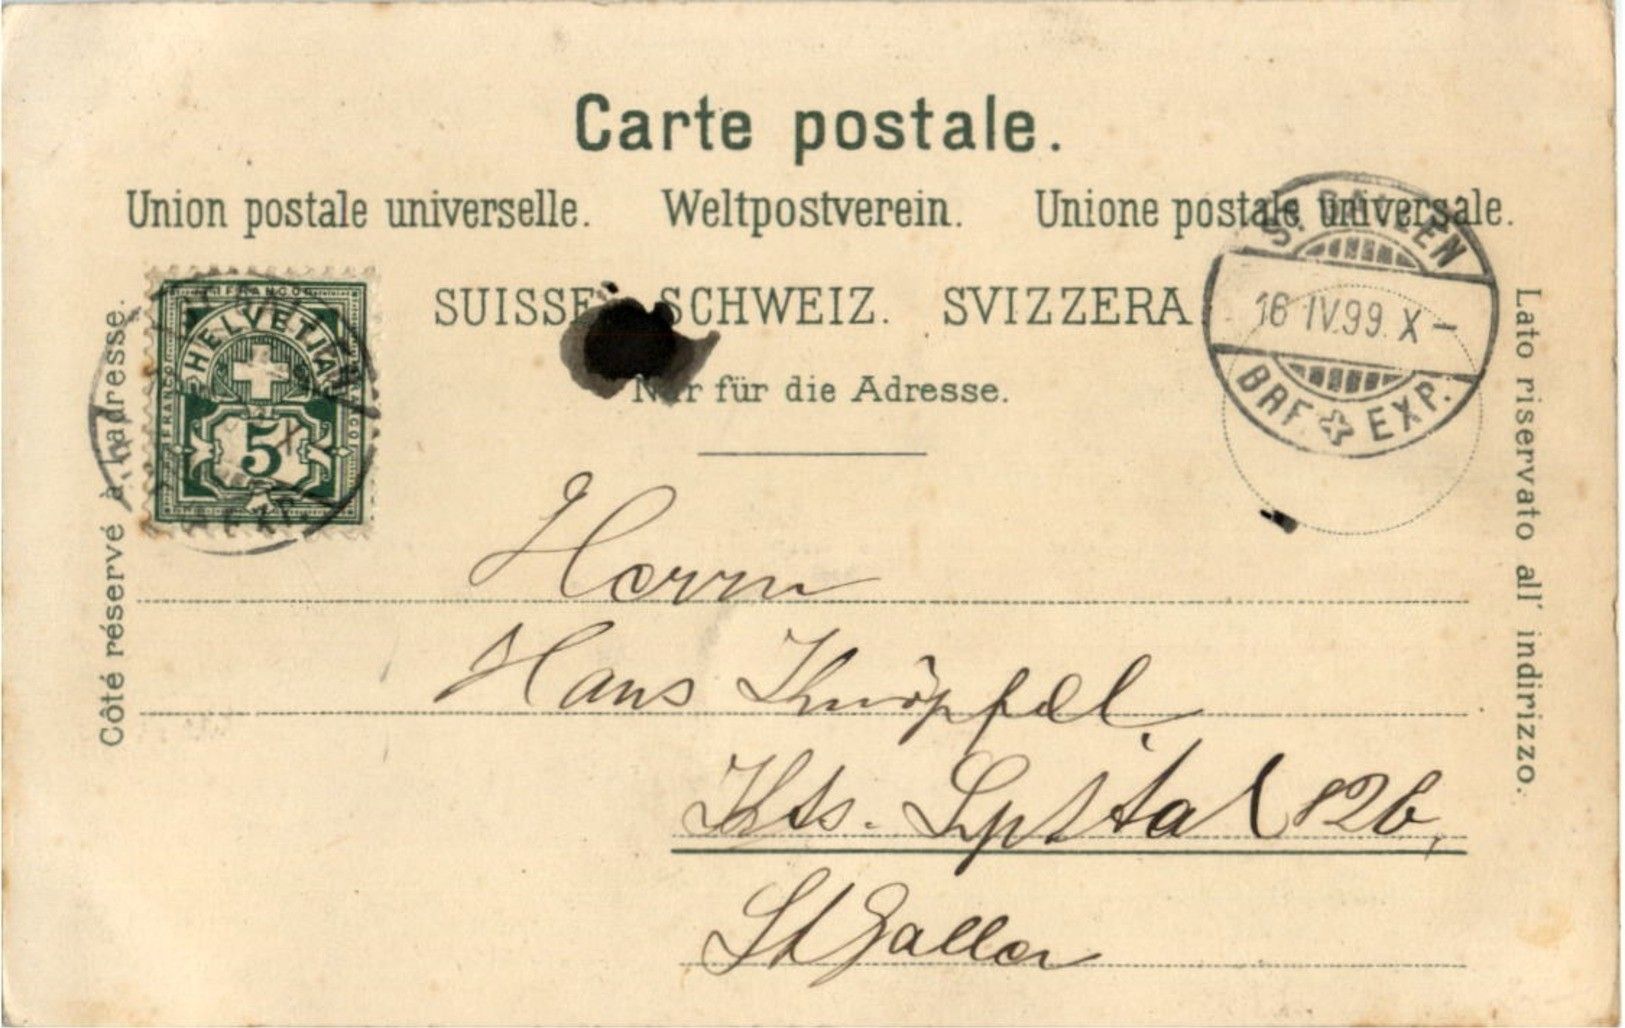 Carte postale.
Union postale universelle. Weltpostverein. Unione postale universale.
SUISSE. SCHWEIZ. SVIZZERA
Nur für die Adresse.
Côté réservé à l'adresse.
Lato riservato all' indirizzo.
FRANCO
HELVETIA
FRANCO
FRANCO
5
S. GALLEN
16 IV.99. X –
BRF. EXP.
Herrn
Hans Knöpfel
Kts. Spital 82b,
St Gallen